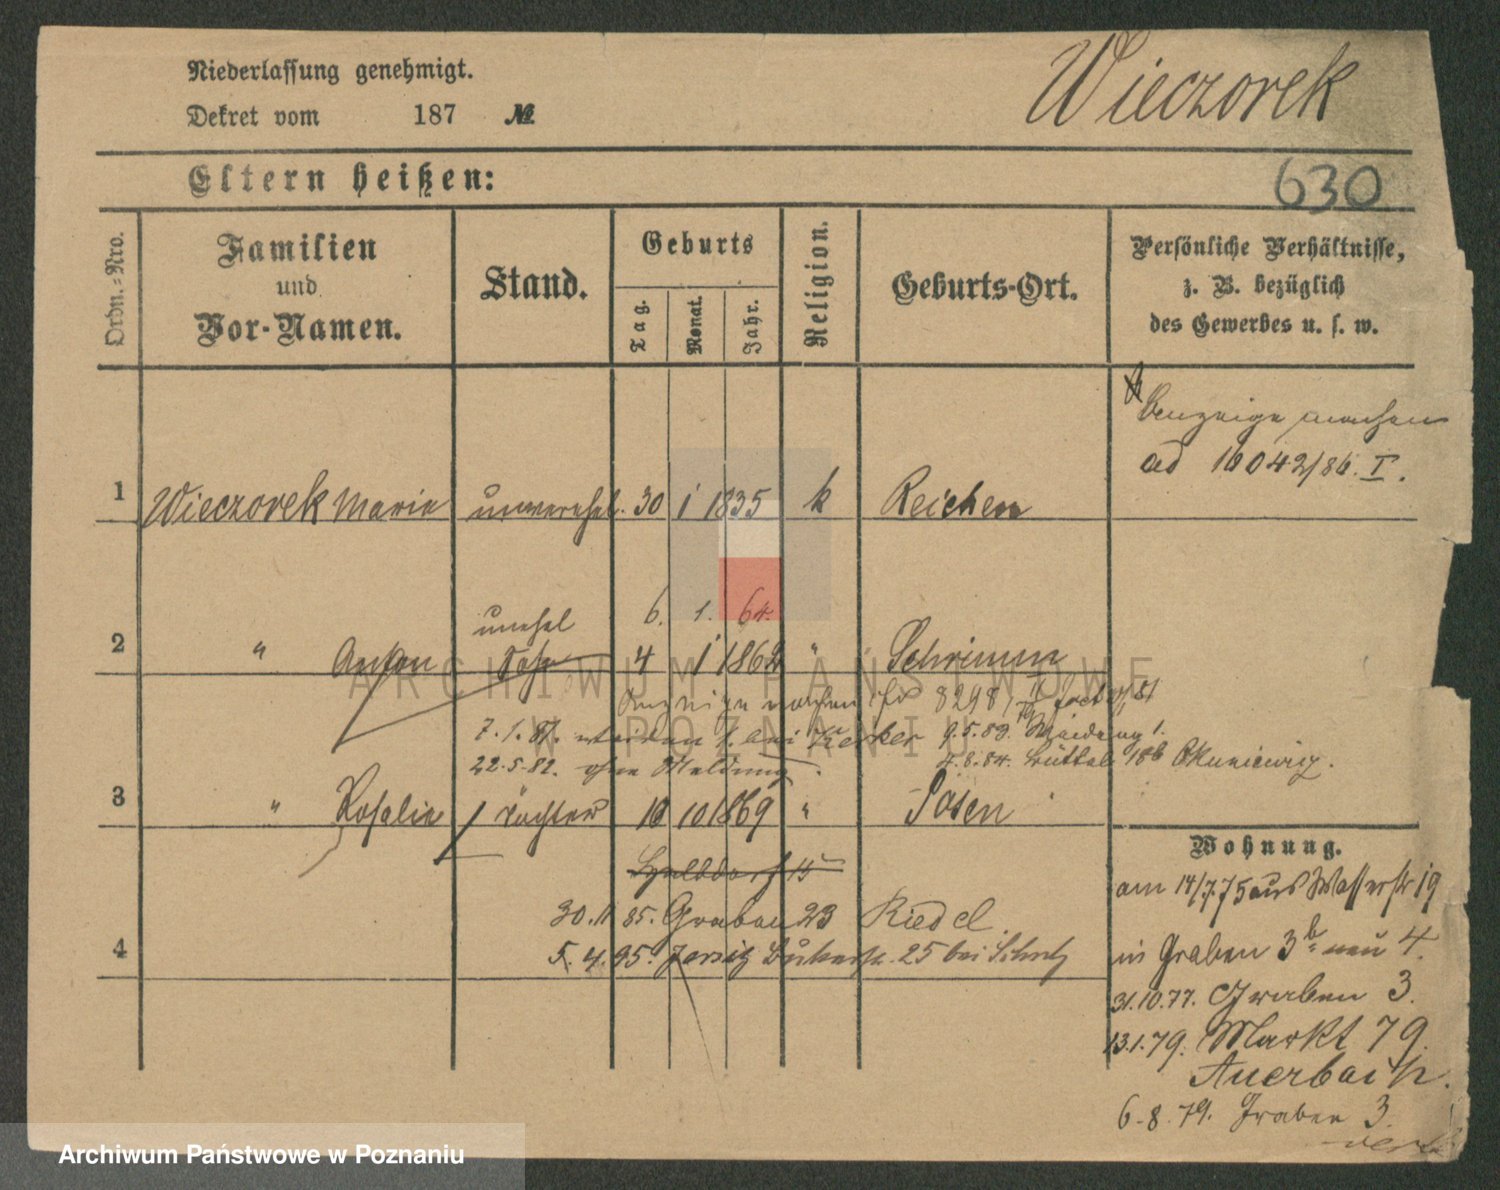 Niederlassung genehmigt.
Wieczorek
Dekret vom 187 №
Eltern heißen:
630
Ordn.-Nro.
Familien
und
Vor-Namen.
Stand.
Geburts
Tag.
Monat.
Jahr.
Religion.
Geburts-Ort.
Persönliche Verhältnisse,
z. B. bezüglich
des Gewerbes u. s. w.
Anzeige machen
ad 16042/86. I.
1 Wieczorek Marie unverehel. 30 1 1835 k Reichen
unehel 6. 1. 64.
2 " Anton Sohn 4 1 1862 " Schrimm
8298
7.1.81. 9.5.83.
22.5.82. ohne Meldung. 4.8.84. Büttel 18b
3 " Rosalie Tochter 10 10 1869 " Posen
Wohnung.
am 14/7.75 aus Wasserstr 19
30.11.85. Graben 23 Riedel.
in Graben 3b neu 4.
4 5.4.95. Jersitz 25 bei
31.10.77. Graben 3.
13.1.79. Markt 79.
Auerbach.
6.8.79. Graben 3.
ARCHIWUM PAŃSTWOWE
W POZNANIU
Archiwum Państwowe w Poznaniu